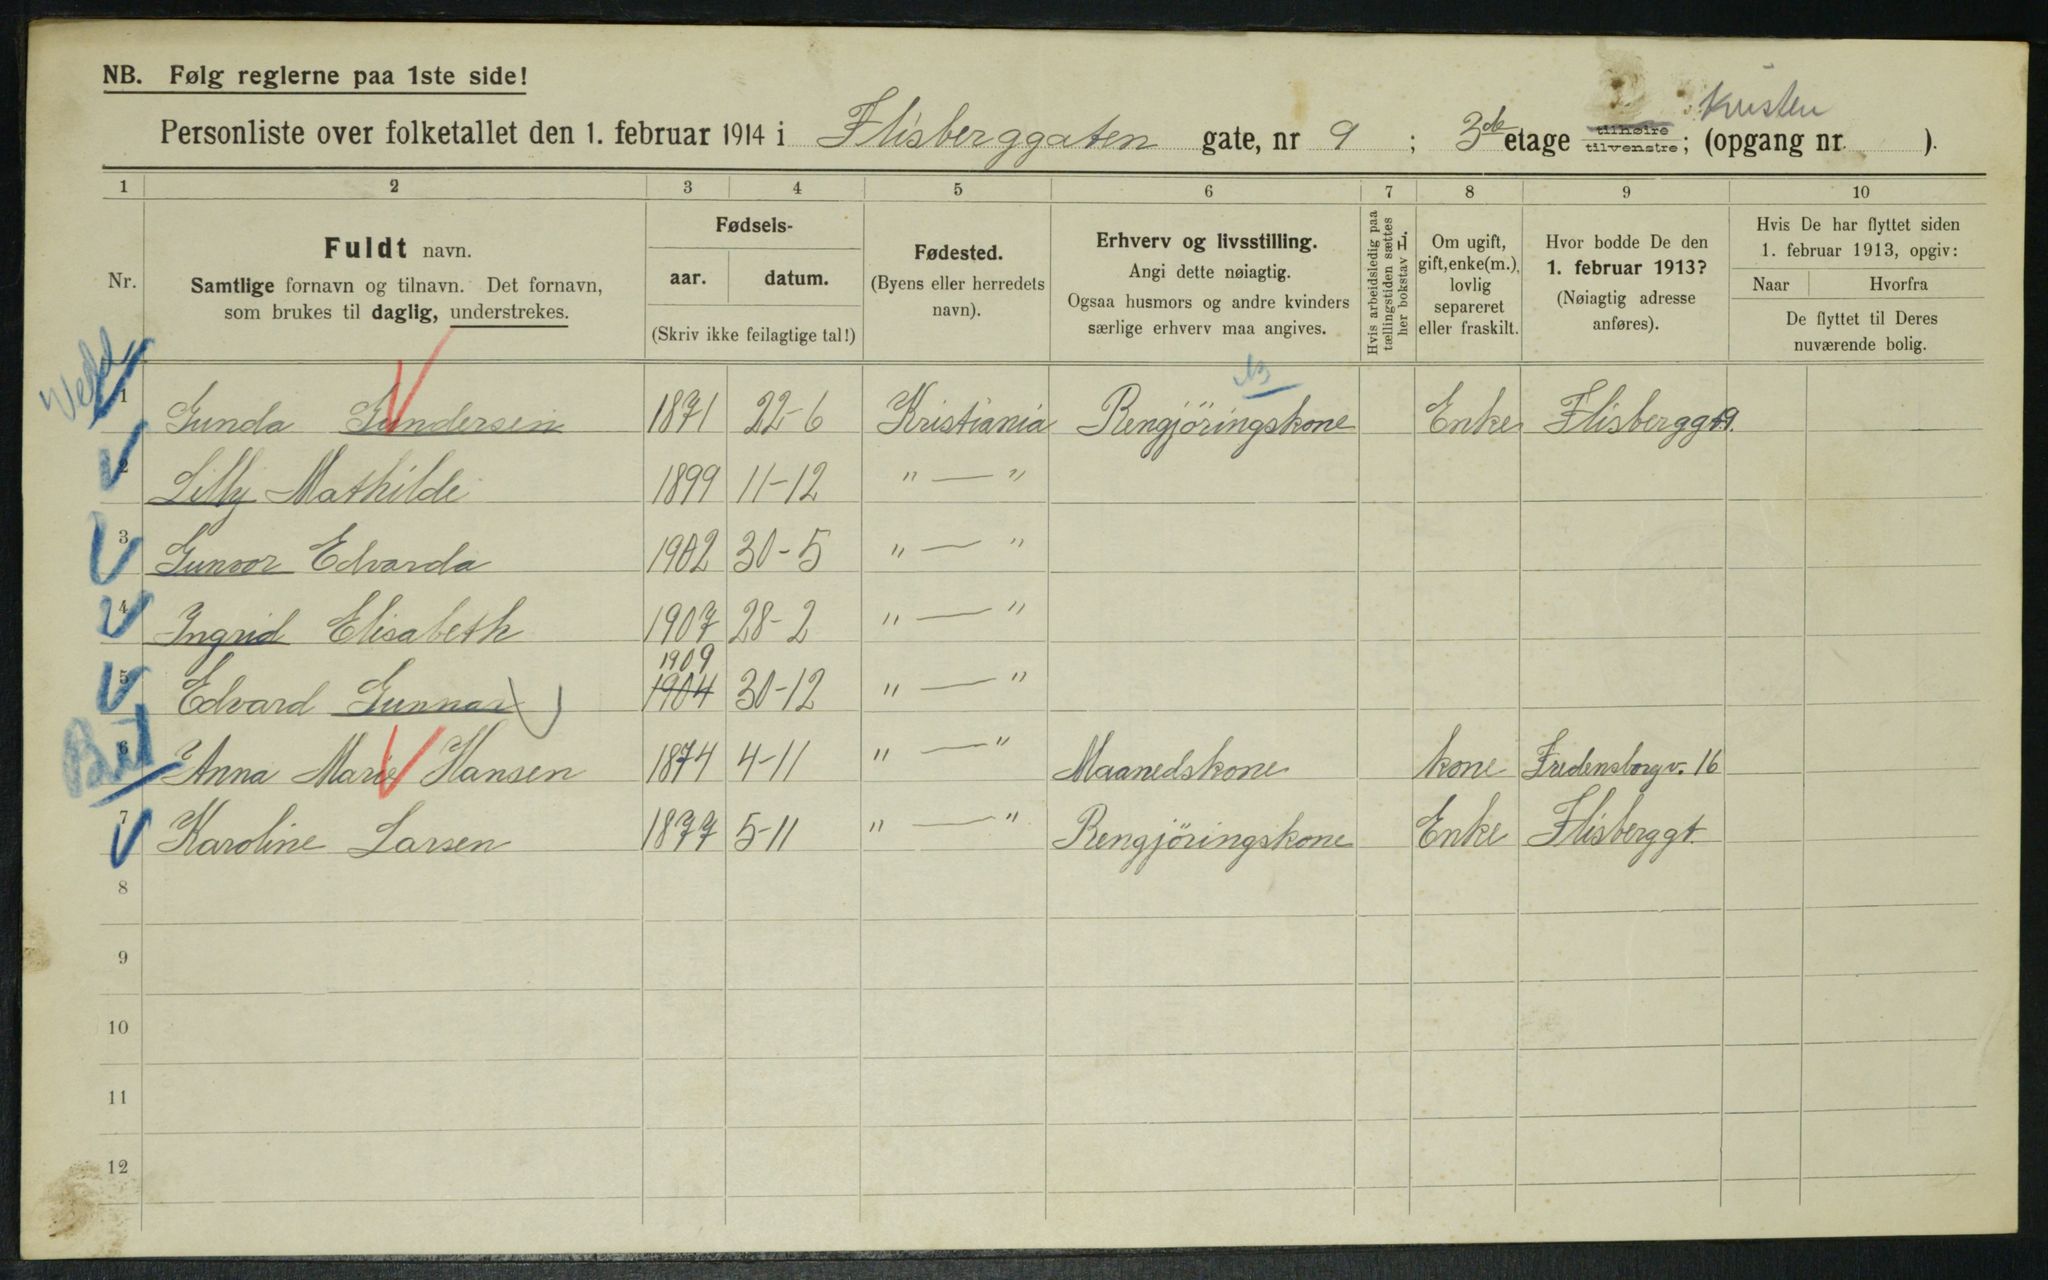 NB. Følg reglerne paa 1ste side!
Kvisten
Personliste over folketallet den 1. februar 1914 i Flisberggaten gate, nr 9 ; 3de etage tilhøire tilvenstre ; (opgang nr. ).
1 2 3 4 5 6 7 8 9 10
Nr.
Fuldt navn.
Samtlige fornavn og tilnavn. Det fornavn,
som brukes til daglig, understrekes.
Fødsels-
aar. datum.
(Skriv ikke feilagtige tal!)
Fødested.
(Byens eller herredets
navn).
Erhverv og livsstilling.
Angi dette nøiagtig.
Ogsaa husmors og andre kvinders
særlige erhverv maa angives.
Hvis arbeidsledig paa
tællingstiden sættes
her bokstav L.
Om ugift,
gift, enke(m.),
lovlig
separeret
eller fraskilt.
Hvor bodde De den
1. februar 1913?
(Nøiagtig adresse
anføres).
Hvis De har flyttet siden
1. februar 1913, opgiv:
Naar Hvorfra
De flyttet til Deres
nuværende bolig.
1 Gunda Gundersen 1871 22-6 Kristiania Rengjöringskone Enke Flisberggt 9.
2 Lilly Mathilde 1899 11-12 " — "
3 Gunvor Edvarda 1902 30-5 " — "
4 Ingrid Elisabeth 1907 28-2 " — "
1909
5 Edvard Gunnar 1904 30-12 " — "
6 Anna Marie Hansen 1874 4-11 " — " Maanedskone kone Fredensborgv. 16
7 Karoline Larsen 1877 5-11 " — " Rengjöringskone Enke Flisberggt.
8
9
10
11
12